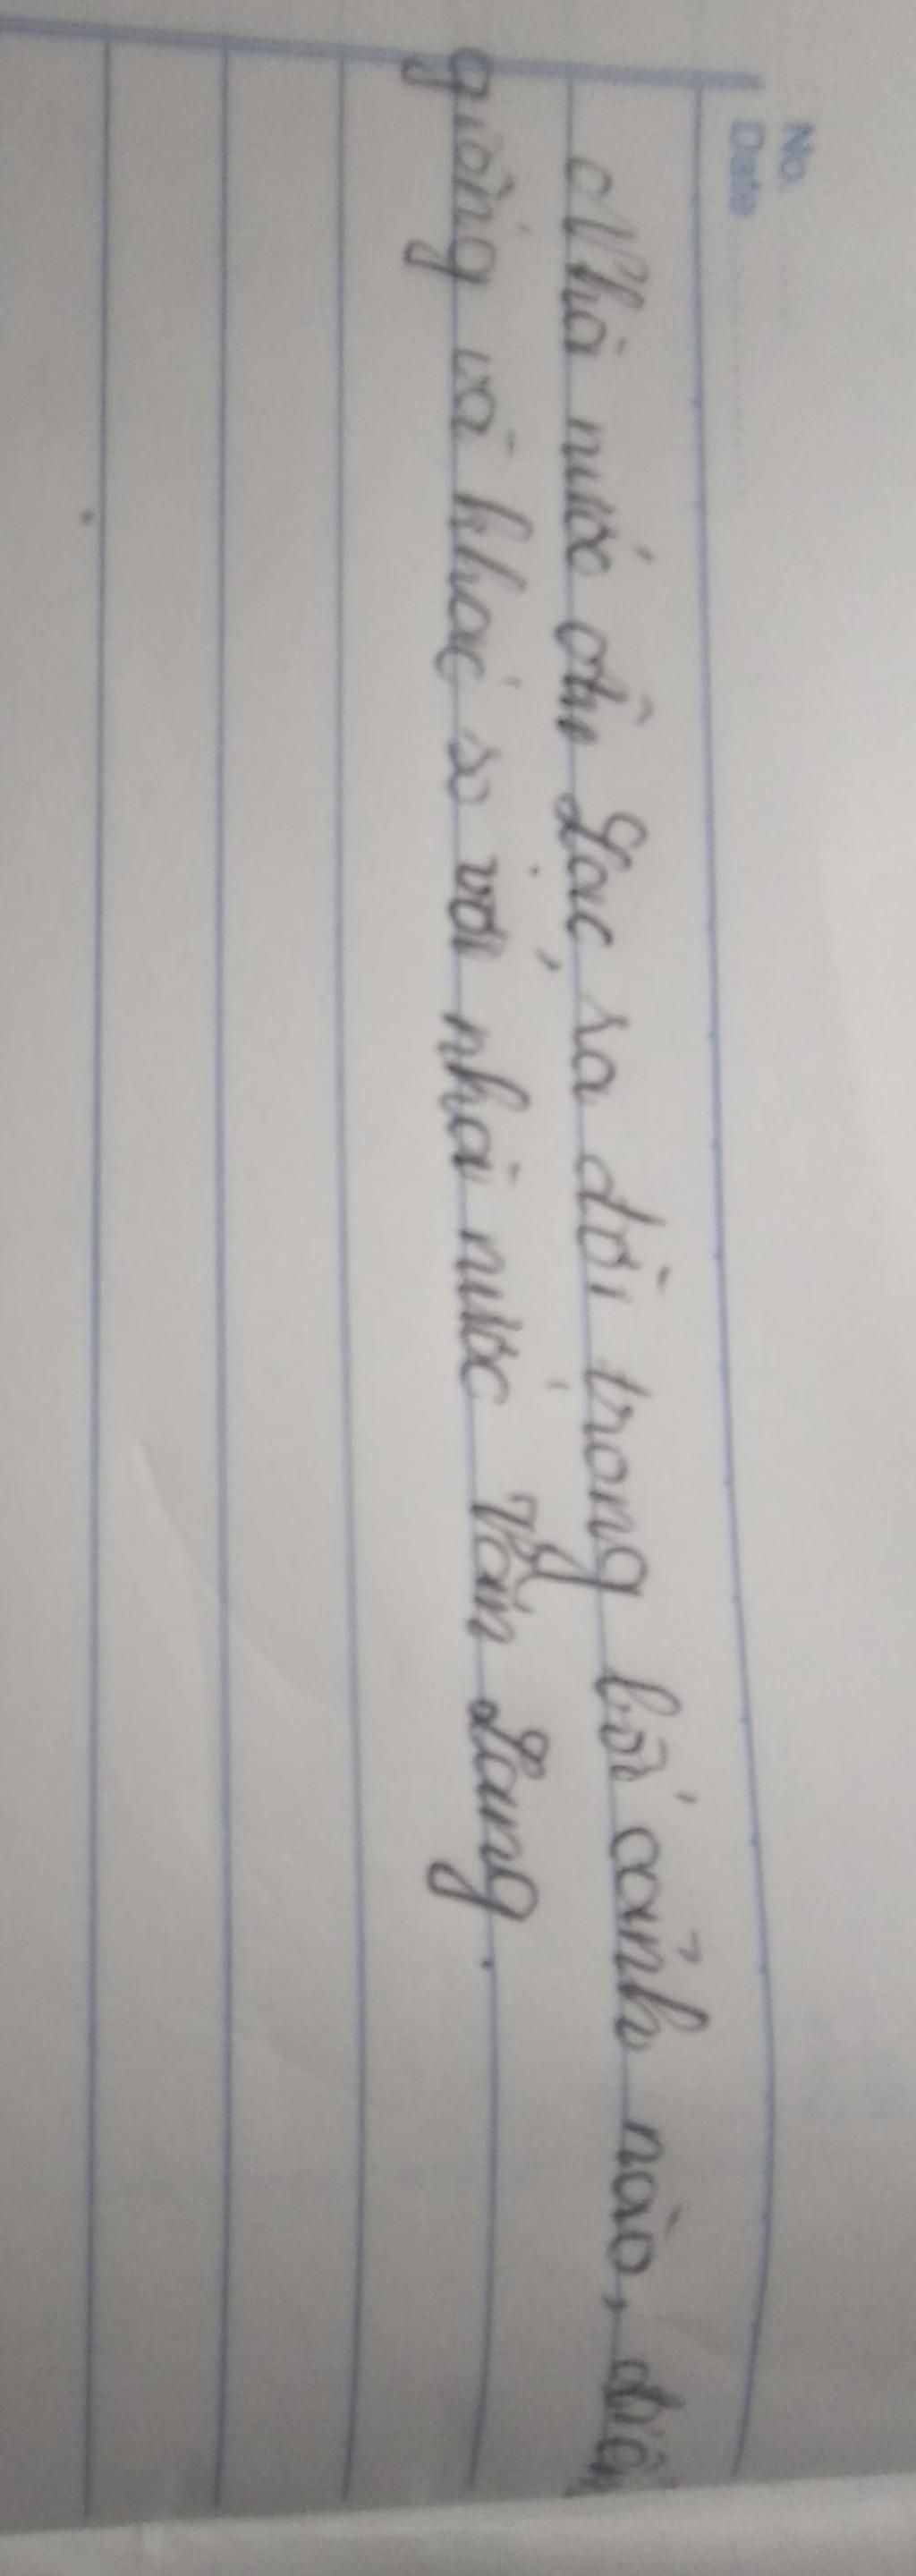 No.
Date
Nhà nước Âu Lạc ra đời trong bối cảnh nào, điểm
giống và khác so với nhà nước Văn Lang.